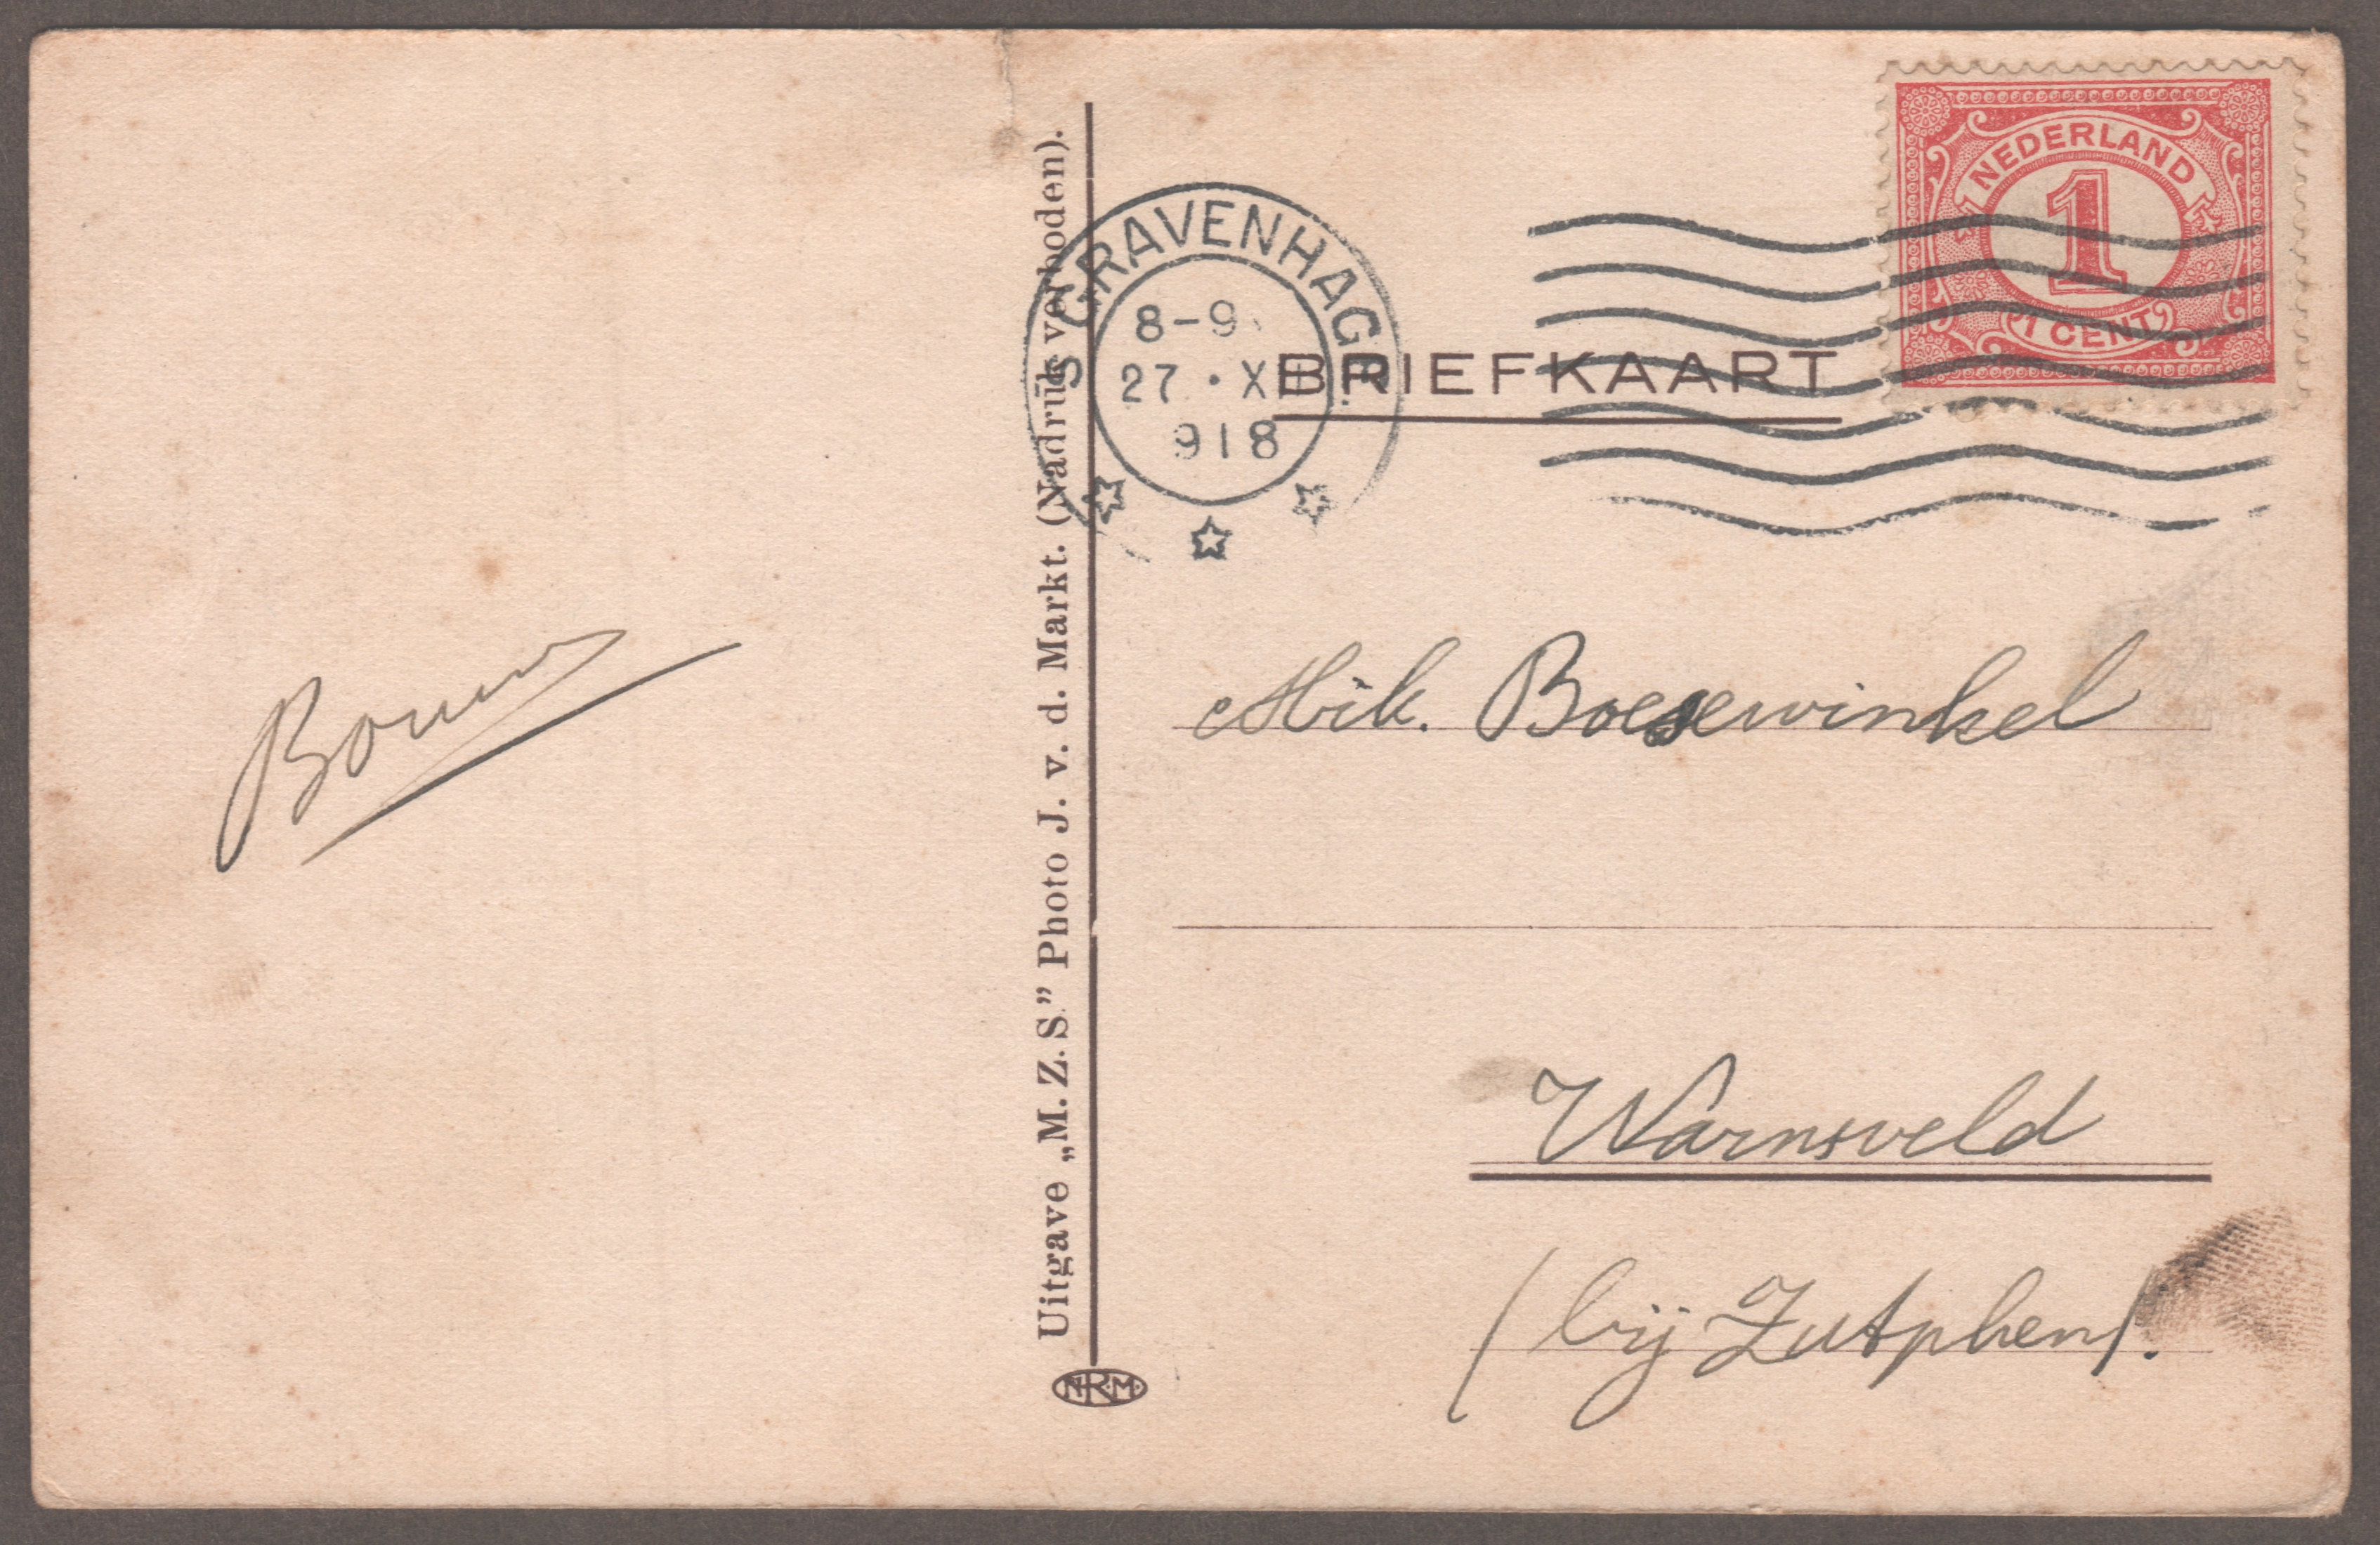 Uitgave „M. Z. S.” Photo J. v. d. Markt. (Nadruk verboden).
N.R.M.
S GRAVENHAGE
8-9
27 · XI
918
BRIEFKAART
NEDERLAND
1
1 CENT
Mik. Boesewinkel
Warnsveld
(bij Zutphen).